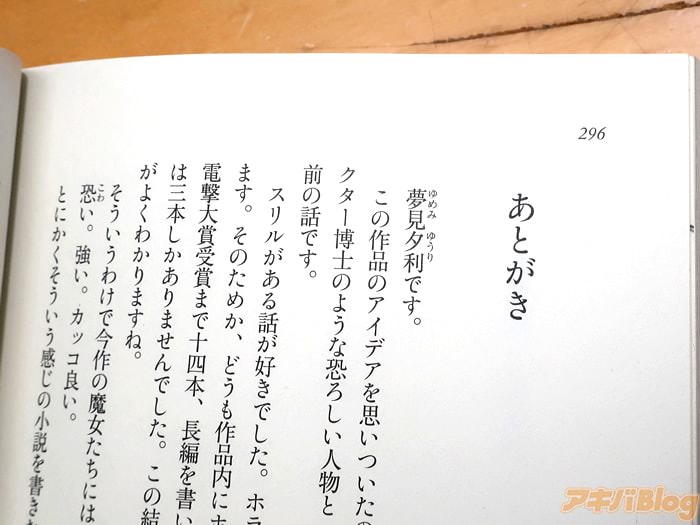 296
あとがき
夢見夕利です。
ゆめみ ゆうり
この作品のアイデアを思いついたの
クター博士のような恐ろしい人物と
前の話です。
スリルがある話が好きでした。ホラ
ます。そのためか、どうも作品内にホ
電撃大賞受賞まで十四本、長編を書い
は三本しかありませんでした。この結
がよくわかりますね。
そういうわけで今作の魔女たちには
恐い。強い。カッコ良い。
こわ
とにかくそういう感じの小説を書き
アキバBlog